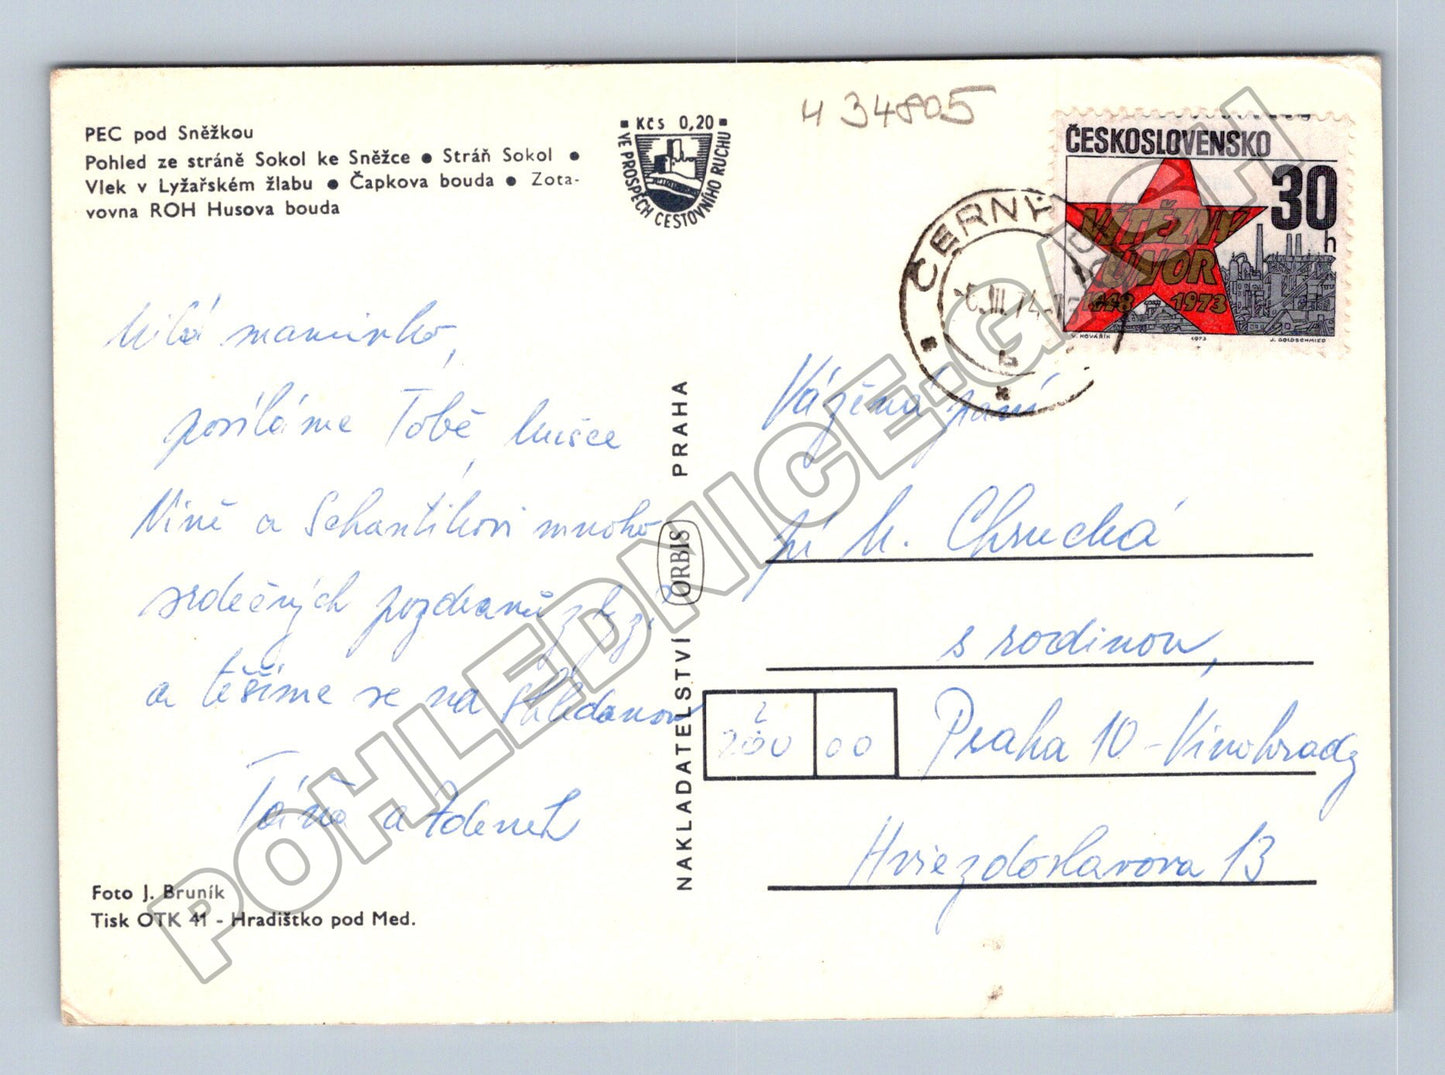 PEC pod Sněžkou
Pohled ze stráně Sokol ke Sněžce • Stráň Sokol •
Vlek v Lyžařském žlabu • Čapkova bouda • Zota-
vovna ROH Husova bouda
Kčs 0,20
VE PROSPĚCH CESTOVNÍHO RUCHU
434805
ČESKOSLOVENSKO
30
h
VÍTĚZNÝ
ÚNOR
1948 1973
V. KOVÁŘÍK 1973 J. GOLDSCHMIED
ČERNÝ
.III.74
Milá maminko,
posíláme Tobě,
Nině a mnoho
srdečných pozdravů z
a těšíme se na shledanou
Táňa a Zdeněk
Foto J. Bruník
Tisk OTK 41 - Hradištko pod Med.
NAKLADATELSTVÍ ORBIS PRAHA
Vážená paní
pí M. Chrucká
s rodinou,
00
Praha 10 - Vinohrady
Hviezdoslavova 13
POHLEDNICE.GASH